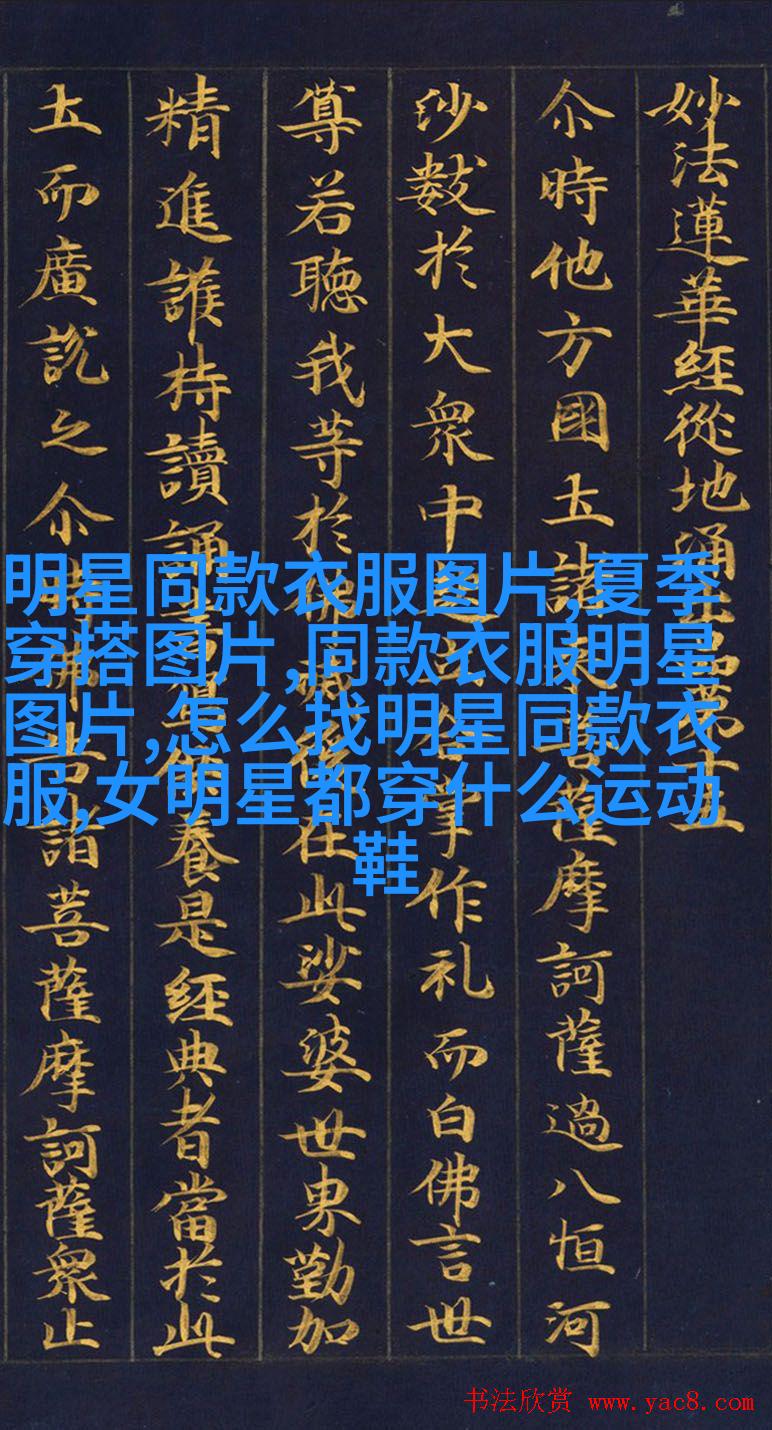 妙法蓮華経從地涌出品第十五
尒時他方國土諸来菩薩摩訶薩過八恒河
沙數於大衆中起合掌作礼而白佛言世
尊若聽我等於佛滅後在此娑婆世界勤加
精進護持讀誦供養是経典者當於此
土而廣說之尒時佛告諸菩薩摩訶薩衆止
明星同款衣服图片,夏季
穿搭图片,同款衣服明星
图片,怎么找明星同款衣
服,女明星都穿什么运动
鞋
书法欣赏 www.yac8.com